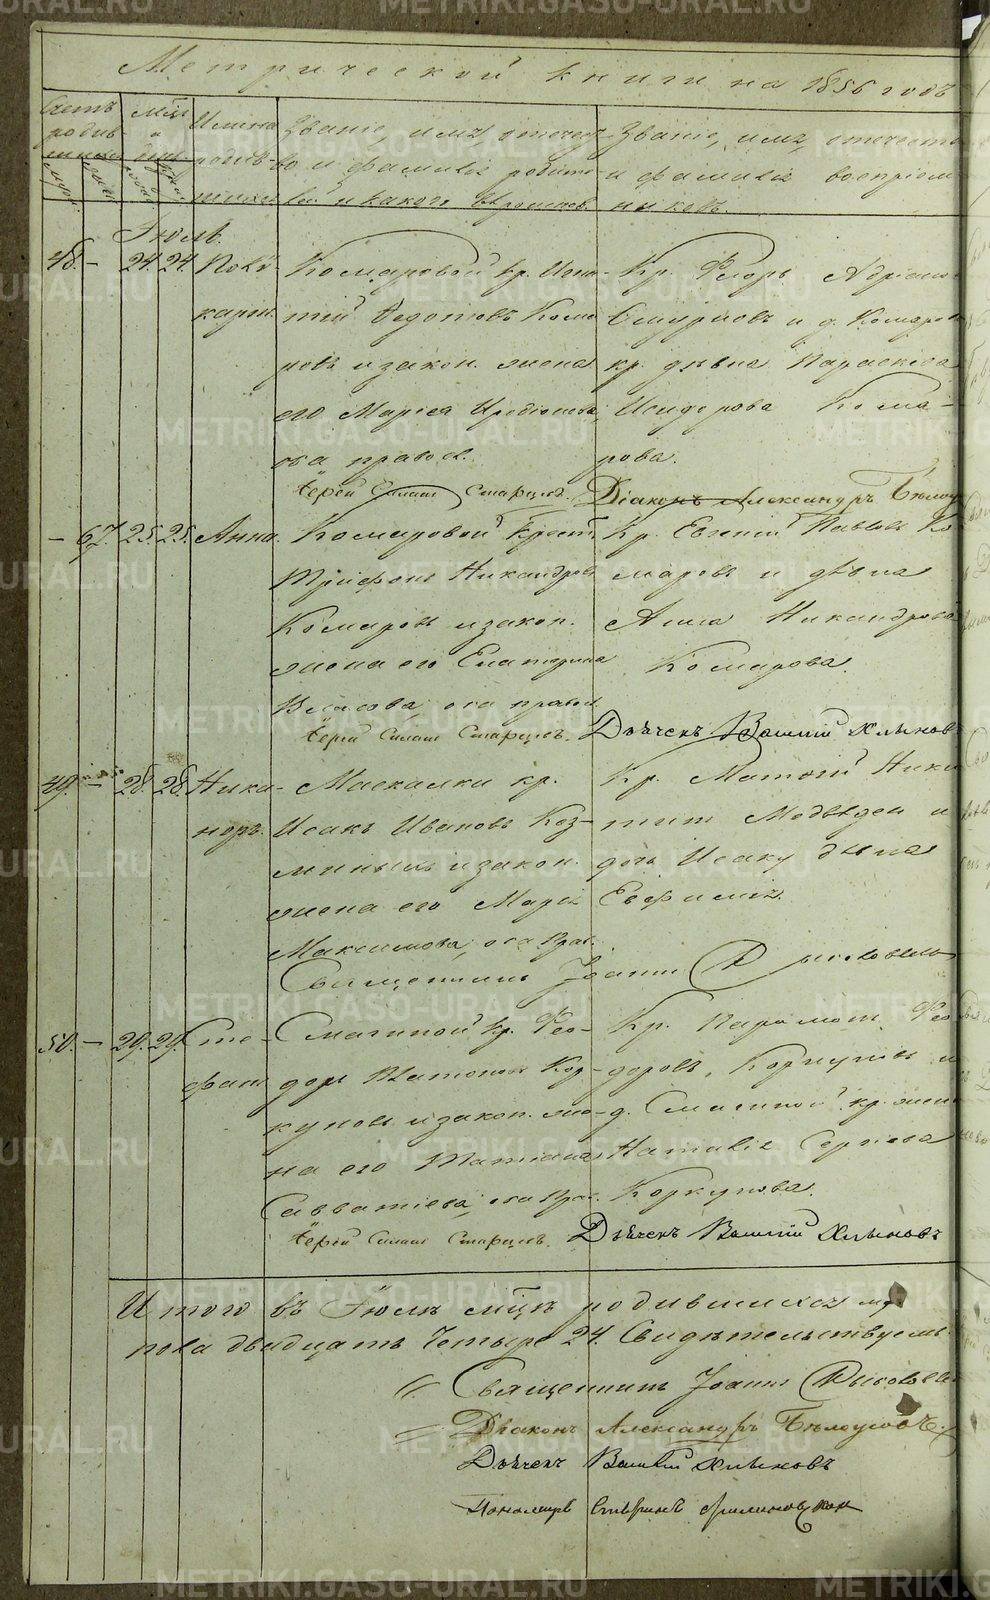 Метрической книги на 1856 годъ
Счетъ родив-шихся
Муж. Жен.
Мѣсяцъ и день
Имена родив-шихся
Званіе, имя, отечест-
во и фамилія родите-
лей и какого вѣроисповѣд.
Званіе, имя, отечество
и фамилія воспріем-
никовъ.
Іюль.
48. – 24. 24. Поли-
карпъ.
Комаровой кр.
Федотовъ Кома-
ровъ и закон. жена
его Марѳа
оба правосл.
Іерей Силаш Старцевъ.
Кр. Адріановъ
Смирновъ и д. Комаров.
кр. дѣвка Параскева
Исидорова Кома-
рова.
Діаконъ Александръ Бѣлоус
– 67. 25. 25. Анна.
Комаровой крест.
Трифонъ Никандровъ
Комаровъ и закон.
жена его Екатерина
Власова, оба правосл.
Іерей Силаш Старцевъ.
Кр. Евгеній Павловъ Ко
маровъ и дѣвка
Анна Никандрова
Комарова.
Дьячекъ Василій Хлыновъ
49. – 28. 28. Ника-
норъ.
Маскалки кр.
Исакъ Ивановъ Коз-
миныхъ и закон.
жена его Марія
Максимова, оба прав.
Кр. Матѳей Ники
тинъ Медвѣдев и
дочь Исаку дѣвка
Евфимія.
Священникъ Іоаннъ
50. – 29. 29. Сте-
фанъ
Смагиной кр. Фео-
доръ Платоновъ Кор-
куновъ и закон. же-
на его Татіана
Савватіева, оба прав.
Іерей Силаш Старцевъ.
Кр. Парамонъ Фео
доровъ Коркуновъ и
д. Смагиной кр. жена
Наталія Сергіева
Коркунова.
Дьячекъ Василій Хлыновъ
Итого въ Іюлѣ мѣсяцѣ родившихся муж.
пола двадцать четыре 24. Свидѣтельствуемъ
Священникъ Іоаннъ
Діаконъ Александръ Бѣлоусовъ
Дьячекъ Василій Хлыновъ
Пономарь
METRIKI.GASO-URAL.RU